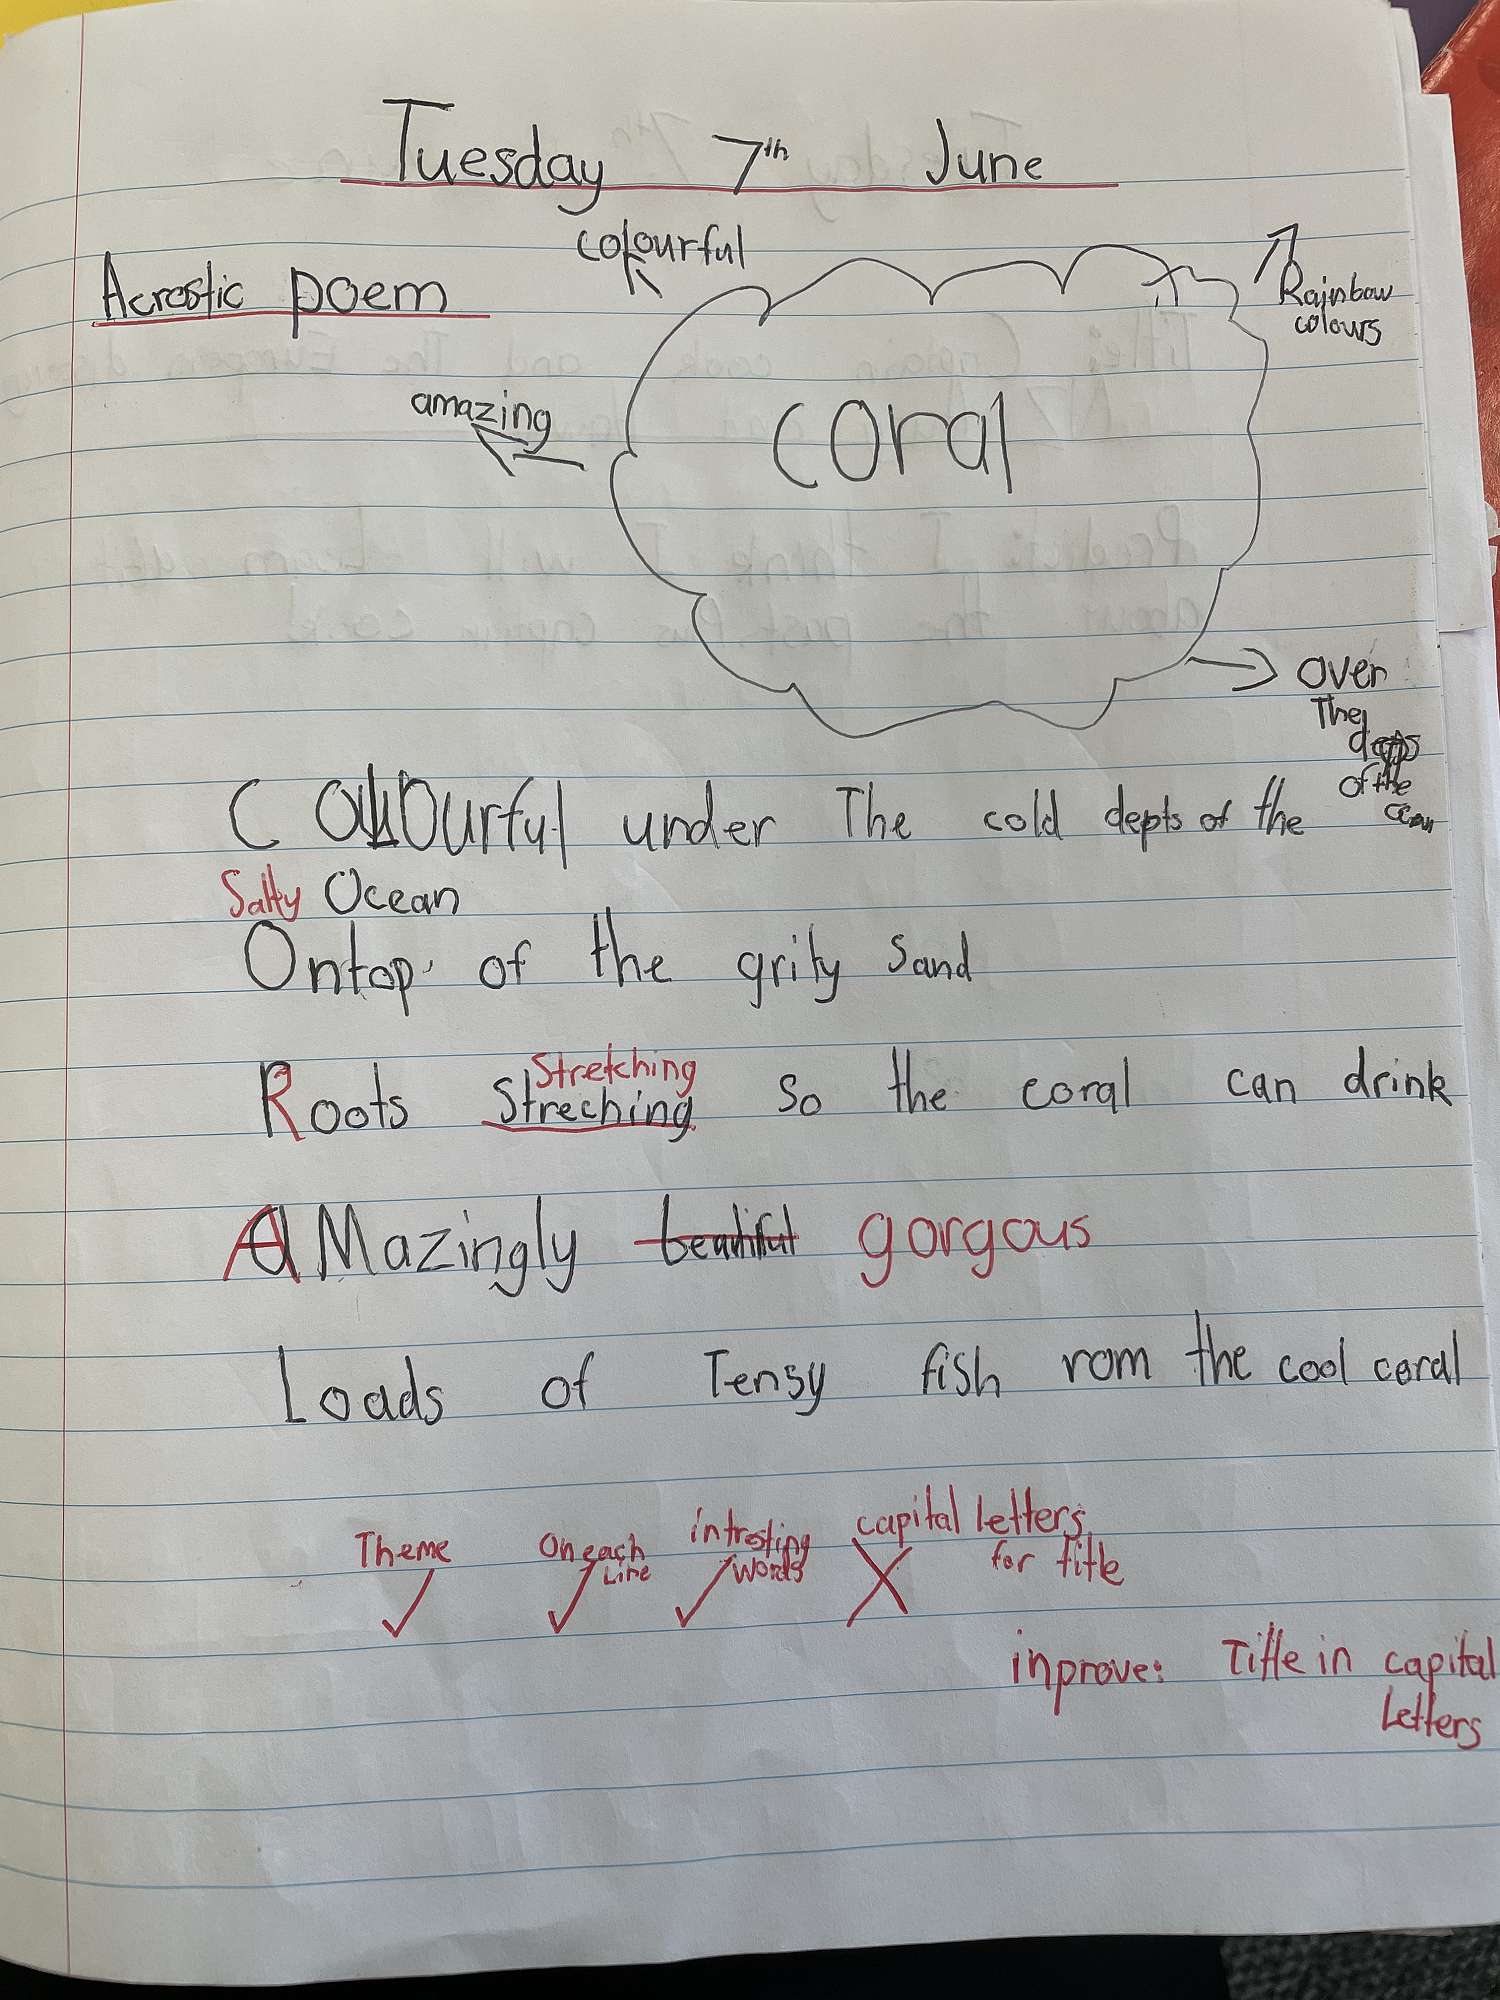 Tuesday 7th June
colourful
Acrostic poem
Rainbow
colours
amazing
coral
over
The
of the
Colourful under The cold depts of the
Salty Ocean
Ontop of the grity sand
Stretching
Roots Streching so the coral can drink
AMazingly beautiful gorgous
Loads of Tensy fish rom the cool coral
Theme
On each
Line
intresting
words
capital letters
for title
inprove: Title in capital
Letters